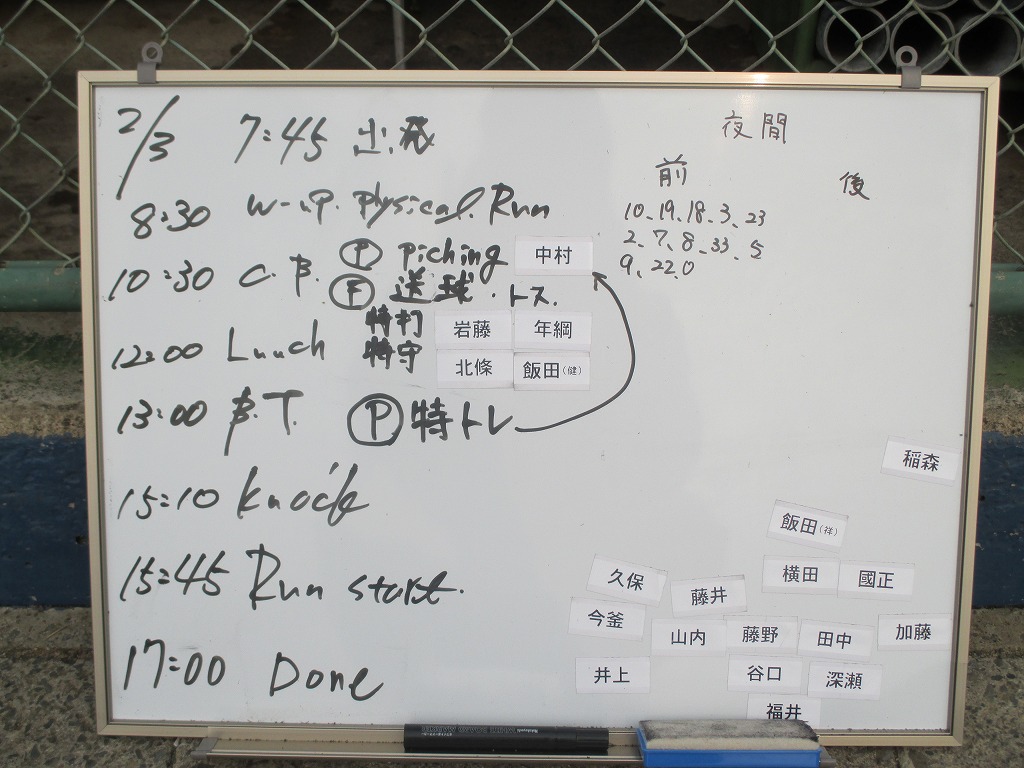 2/3 7:45 出発
8:30 W-up. Physical. Run
10:30 C.B. Ⓟ Piching 中村
Ⓕ 送球・トス.
特打 岩藤 年綱
12:00 Lunch 特守 北條 飯田(健)
13:00 B.T. Ⓟ特トレ
15:10 Knock
15:45 Run start.
17:00 Done
夜間
前
10、19、18、3、23
2、7、8、33、5
9、22、0
後
稲森
飯田(祥)
久保 藤井 横田 國正
今釜 山内 藤野 田中 加藤
井上 谷口 深瀬
福井